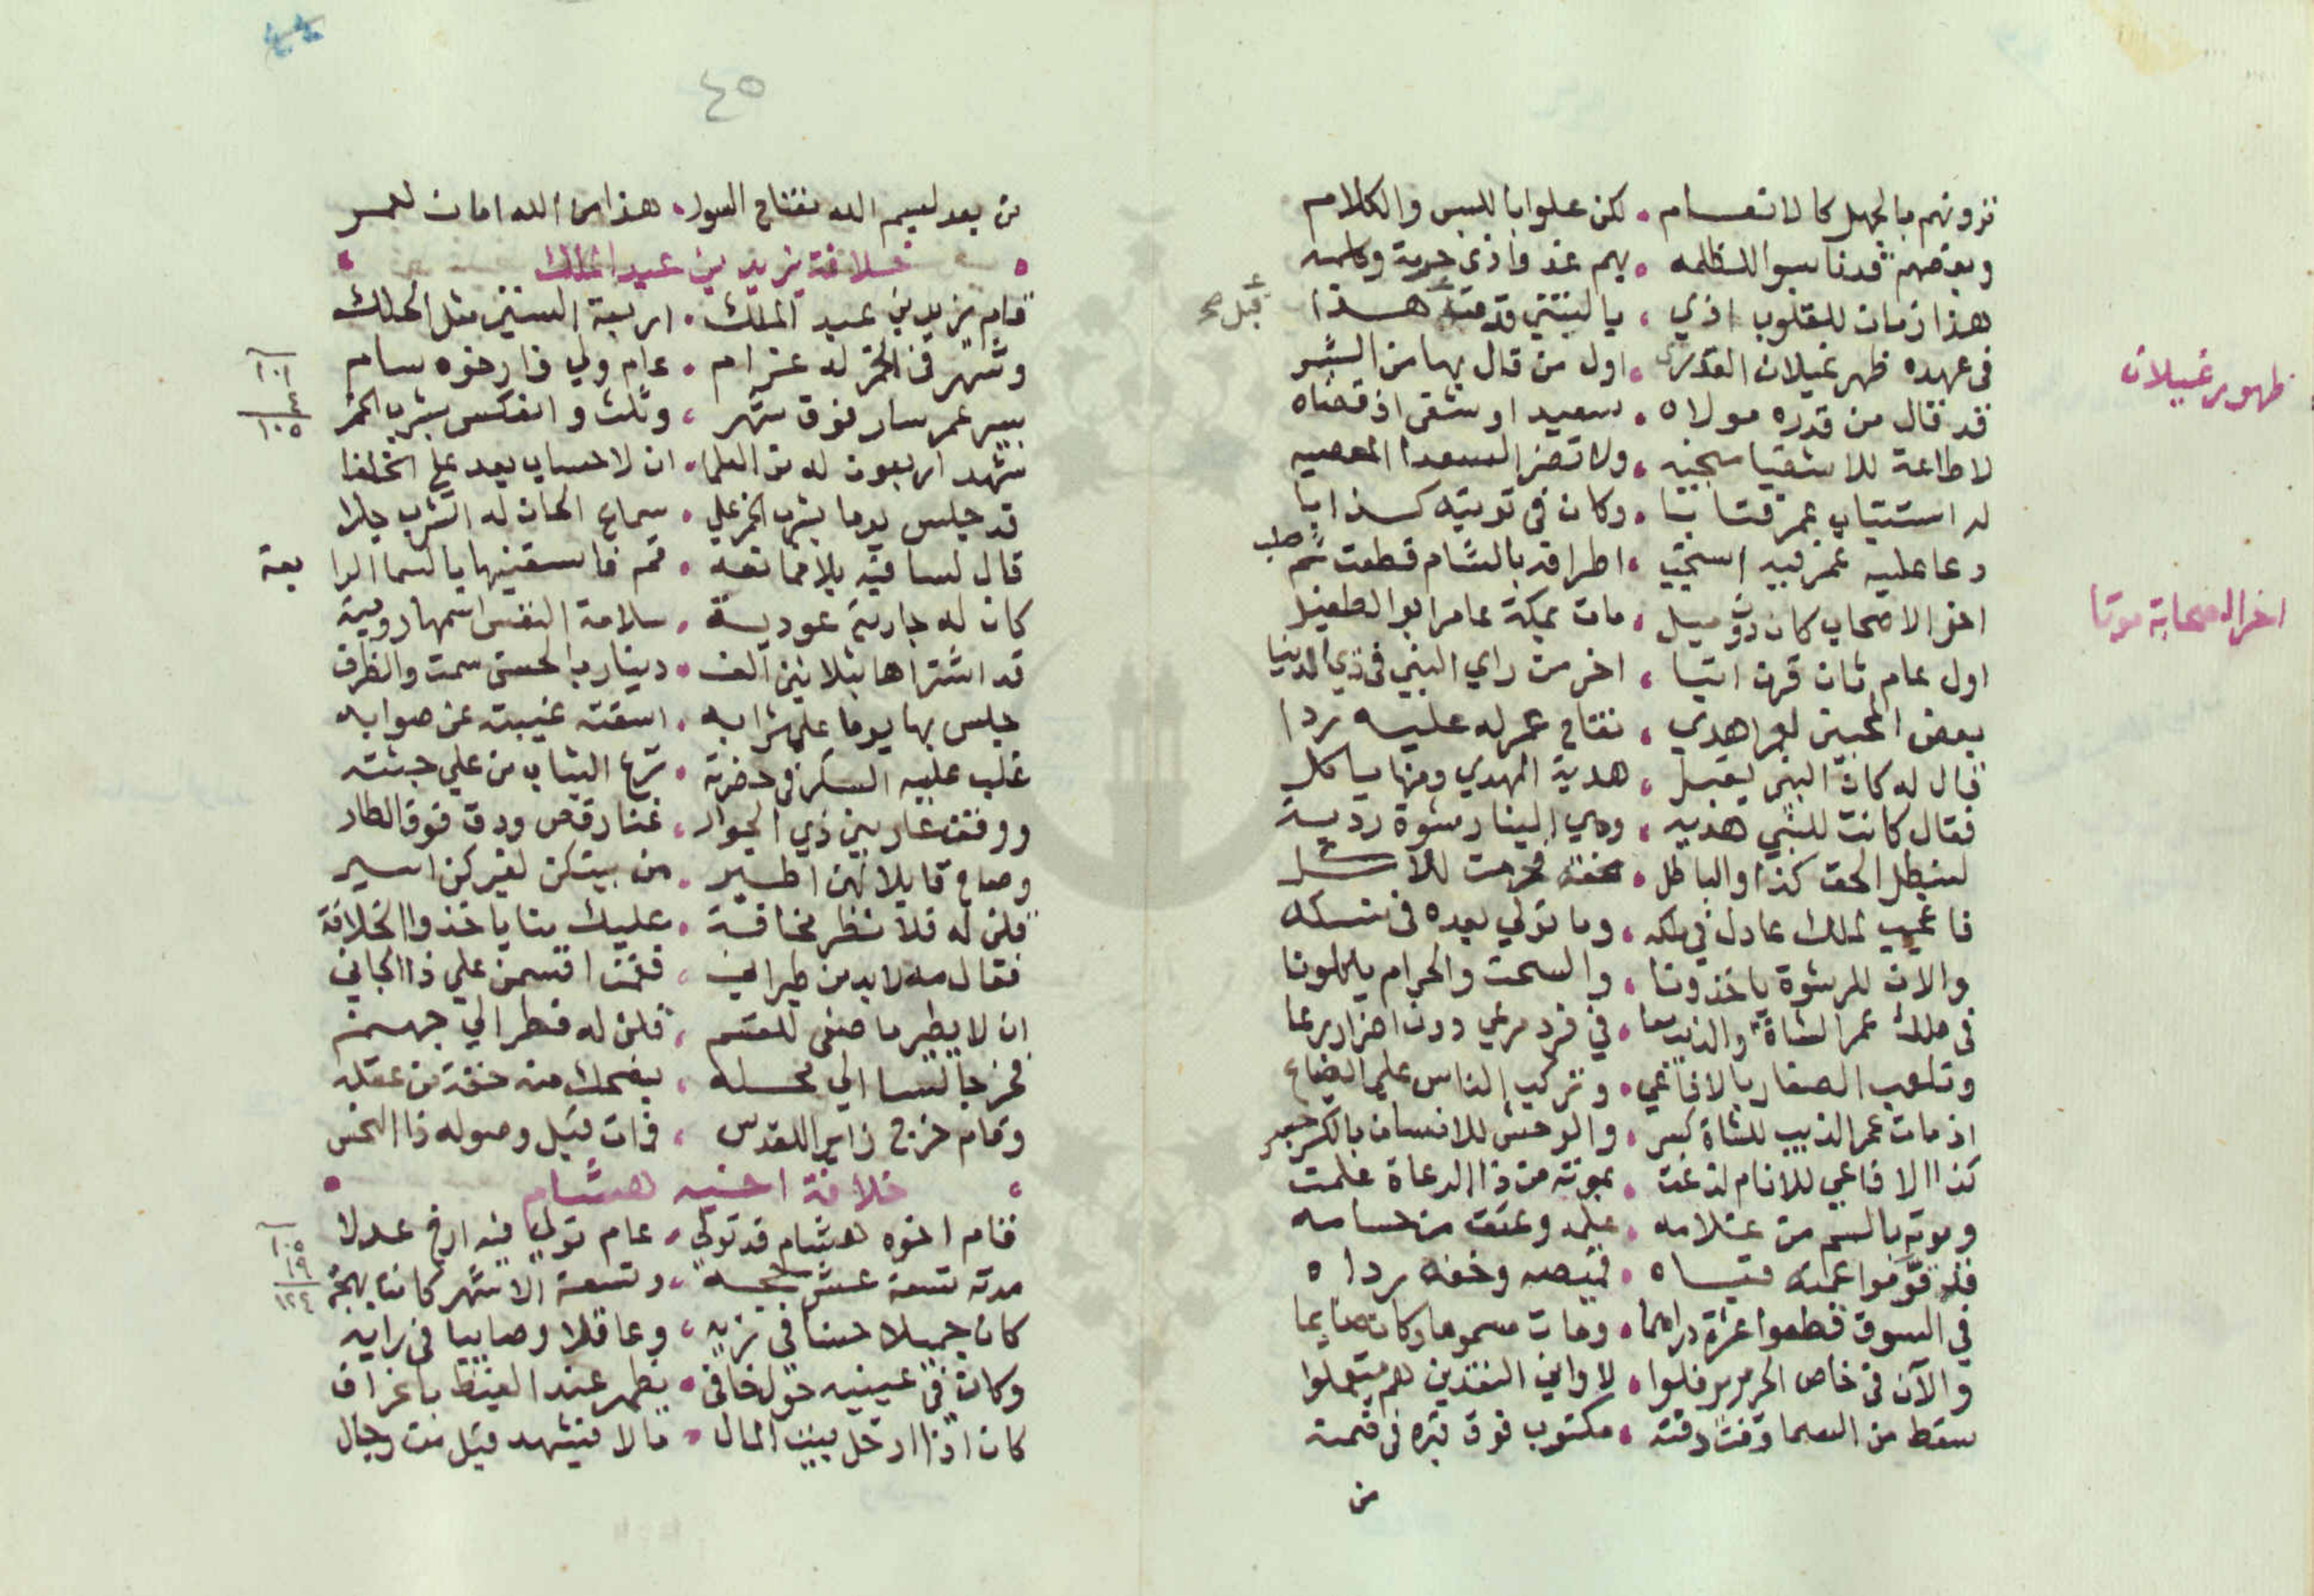 تزونهم بالجهل كالانعام . لكن علوا باللبس والكلام
وبعضهم قد ناسبوا للظلمه . بهم غدوا ذي حرمة وكلمه
هذا زمان للقلوب اذي ، ياليتني قدمت هذا
قبل صح
في عهده ظهر غيلان القدري . اول من قال بها من البشر
ظهور غيلان
قد قال من قدره مولاه . سعيد او شقي اذ قضاه
لا طاعة للاشقيا منجيه . ولا تضر السعدا المعصيه
له استتاب عمر فتابا . وكان في توبته كذابا
دعا عليه عمر فيه استجب . اطرافه بالشام قطعت ثم صلب
اخر الاصحاب كان دون ميل . مات بمكة عامر ابو الطفيل
اخر الصحابة موتا
اول عام ثان قرن اتيا . اخر من راي النبي في ذي الدنيا
بعض المحبين لعمر اهدي ، تفاح عمر له عليه ردا
قال له كان النبي يقبل ، هدية المهدي ومنها ياكل
فقال كانت للنبي هديه ، وهي الينا رشوة رديه
لتبطل الحق كذا والباطل . تحقه فحرمت للآكل
فاعجب لملك عادل في ملكه ، وما تولي بعده في نسكه
والان للرشوة ياخذونا ، والسحت والحرام ياكلونا
في ملك عمر الشاة والذيب معا . في فرد مرعي دون اضرار رعا
وتلعب الصغار بالافاعي . وتركب الناس علي السباع
اذ مات عمر الذيب للشاة كسر ، والوحش للانسان بالكر جسر
كذا الافاعي للانام لدغت . بموته من ذا الدعاة علمت
وموته بالسم من غلامه . علمه وعتق من حسامه
قد قوموا عمته قباه . قميصه وخفه رداه
في السوق قطعوا عشرة دراهما . ومات مسموما وكان صايما
والآن في خاص الحرير رفلوا . لاواني النقدين هم يستعملوا
سقط من السما وقت دفنه . مكتوب فوق قبره في قمته
من
٤٥
من بعد لبسم الله مفتاح السور . هذا من الله امان لعمر
خلافة يزيد بن عبد الملك
قام يزيد بن عبد الملك . اربعة السنين مثل الحلك
وشهر في الخمر له غرام . عام ولي فارخوه سام
١٠١
٤
١٠٥
بسير عمر سار فوق شهر ، وثلث وانعكس بشرب الخمر
شهد اربعون له من العلما . ان لا حساب بعد علي الخلفا
قد جلس يوما بشرب الخمر علي . سماع الحان له الشرب جلا
قال لساقيه بلا ممانعه . قم فاسقنيها يا لسما الرابعة
كان له جارية عوديه . سلامة النفس اسمها روميه
قد اشتراها بثلاثين الف . دينار بالحسن سمت والظرف
جلس بها يوما علي شرابه . اسقته غيبته عن صوابه
غلب عليه السكر في حضرته . نزع الثياب من علي جثته
ووقف عار بين ذي الجوار ، غنا رقص ودق فوق الطار
وصاح قايلا لهن اطير . من بيتكن لغيركن اسير
قلن له فلا تطر مخافة . عليك منا ياخذوا الخلافة
فقال مه لا بد من طيراني ، فقمن اقسمن علي ذا الجاني
ان لا يطير ما صغي للقسم ، قلن له فطر الي جهنم
فخرجا النسا الي محله ، يضحك منه خفة من عقله
وقام خرج زاير اللقدس ، فات قبل وصوله ذا النحس
خلافة اخيه هشام
فقام اخوه هشام قد تولي . عام تولي فيه ارخ عدلا
١٠٥
١٩
١٢٤
مدته تسعة عشر حجه . وتسعة الاشهر كانت بهجة
كان جميلا حسنا في زيه ، وعاقلا وصايبا في رايه
وكان في عينيه حول خافي . يظهر عند الغيظ بانحراف
كان اذا ادخل بيت المال . مالا فيشهد قبل من رجال